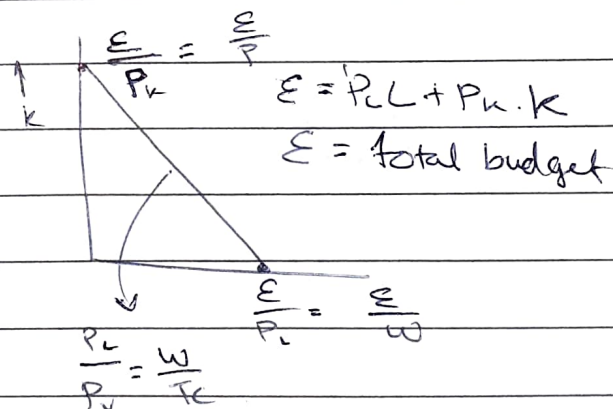 ε/P_K = ε/P
ε = P_L L + P_K . K
K
ε = total budget
ε/P_L = ε/W
P_L/P_K = W/